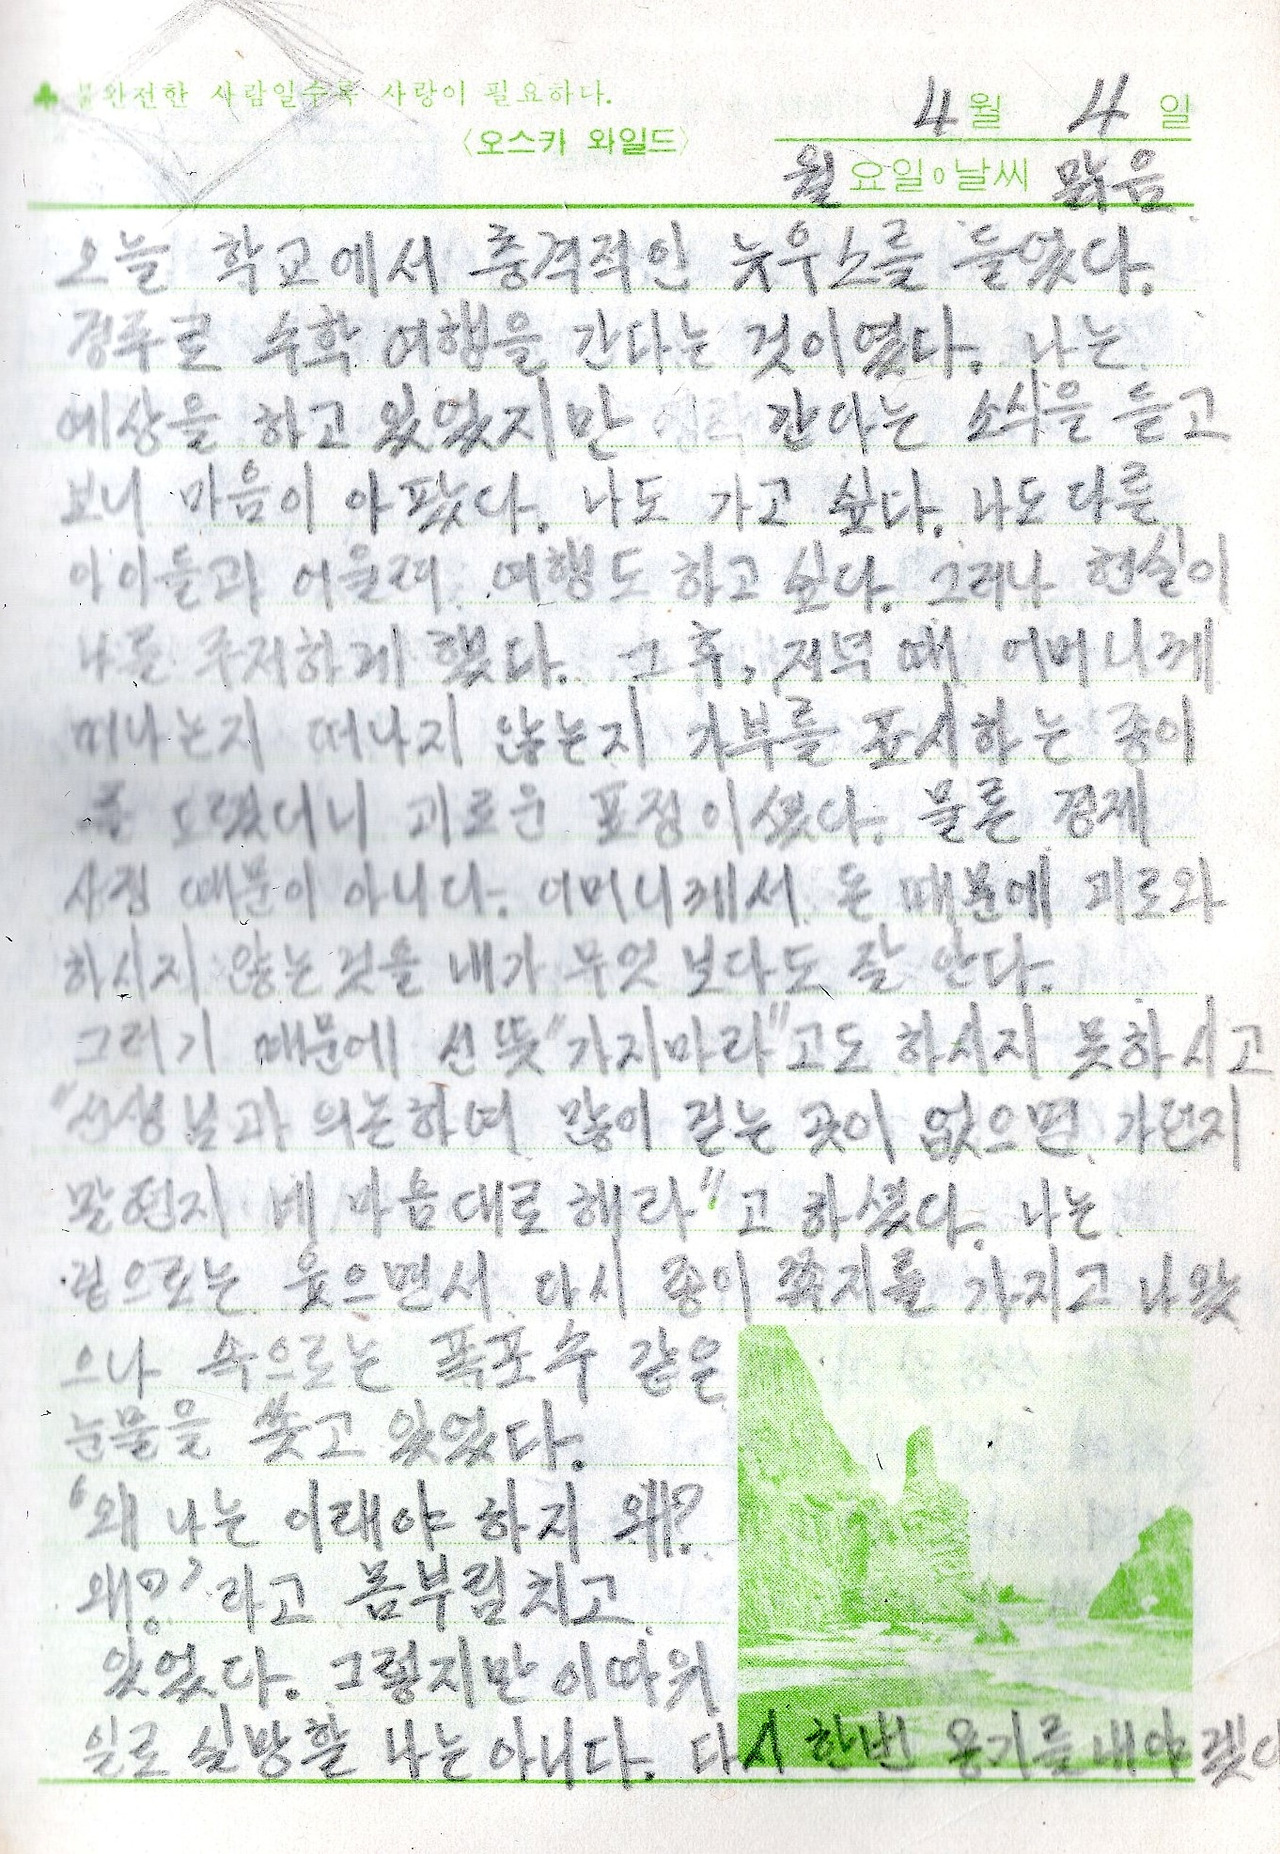 불완전한 사람일수록 사랑이 필요하다.
〈오스카 와일드〉
4월 4일
월요일 날씨 맑음
오늘 학교에서 충격적인 뉴우스를 들었다.
경주로 수학 여행을 간다는 것이였다. 나는
예상을 하고 있었지만 간다는 소식을 듣고
보니 마음이 아팠다. 나도 가고 싶다. 나도 다른
아이들과 어울려 여행도 하고 싶다. 그러나 현실이
나를 주저하게 했다. 그 후, 저녁 때 어머니께
떠나는지 떠나지 않는지 가부를 표시하는 종이
를 드렸더니 괴로운 표정이셨다. 물론 경제
사정 때문이 아니다. 어머니께서 돈 때문에 괴로와
하시지 않는것을 내가 무엇 보다도 잘 안다.
그러기 때문에 선뜻 "가지마라"고도 하시지 못하시고
"선생님과 의논하여 많이 걷는 곳이 없으면 가던지
말던지 네 마음대로 해라"고 하셨다. 나는
겉으로는 웃으면서 다시 종이 쪽지를 가지고 나왔
으나 속으로는 폭포수 같은
눈물을 쏟고 있었다.
'왜 나는 이래야 하지 왜?
왜?' 라고 몸부림치고
있었다. 그렇지만 이따위
일로 실망할 나는 아니다. 다시 한번 용기를 내야 겠다